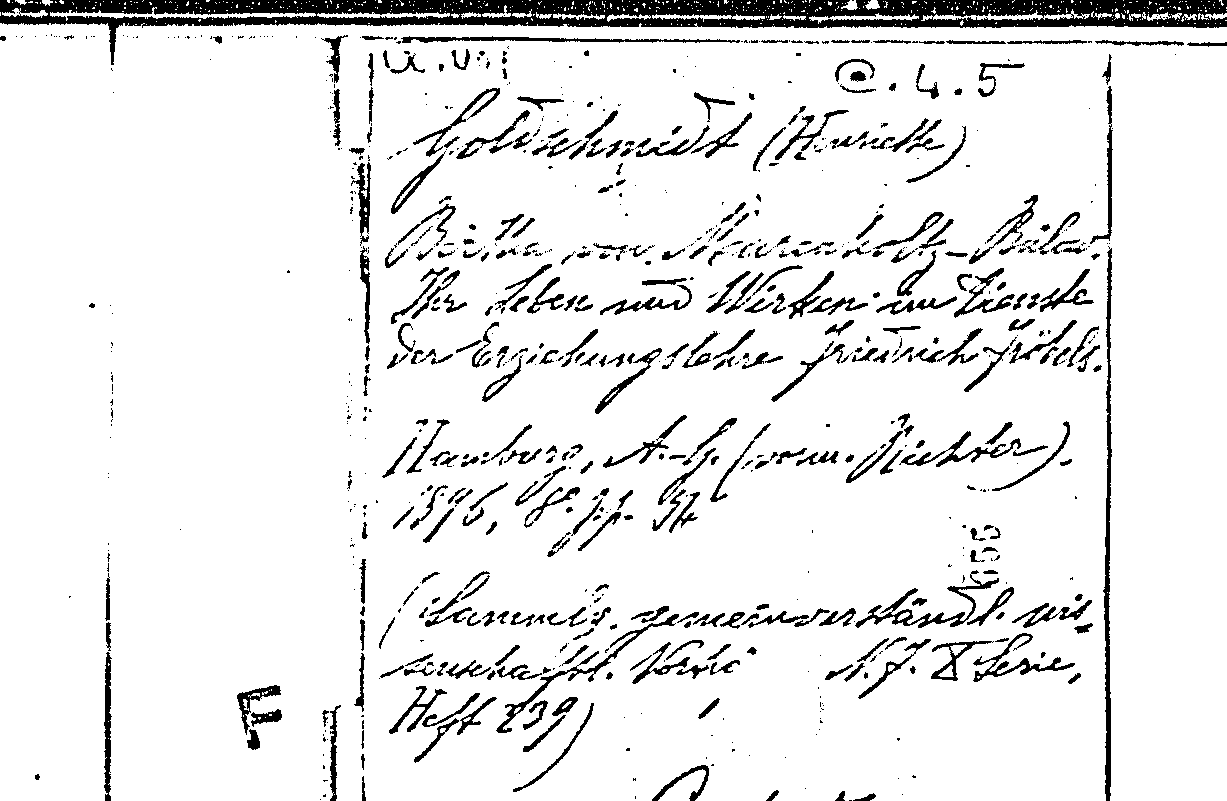 @. 4. 5
Goldschmidt (Henriette)
Bertha von Marenholtz-Bülow.
Ihr Leben und Wirken im Dienste
der Erziehungslehre Friedrich Fröbels.
Hamburg, A.-G. (vorm. Richter).
1896, 8°. pp. 34
655
(Sammlg. gemeinverständl. wis-
senschaftl. Vortr. N.F. X Serie,
Heft 239)
F